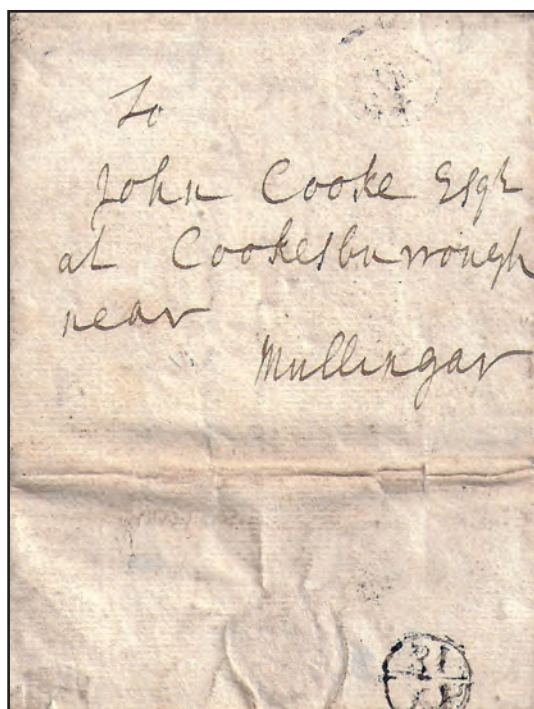 To
John Cooke Esqr
at Cookesburrough
near
Mullingar